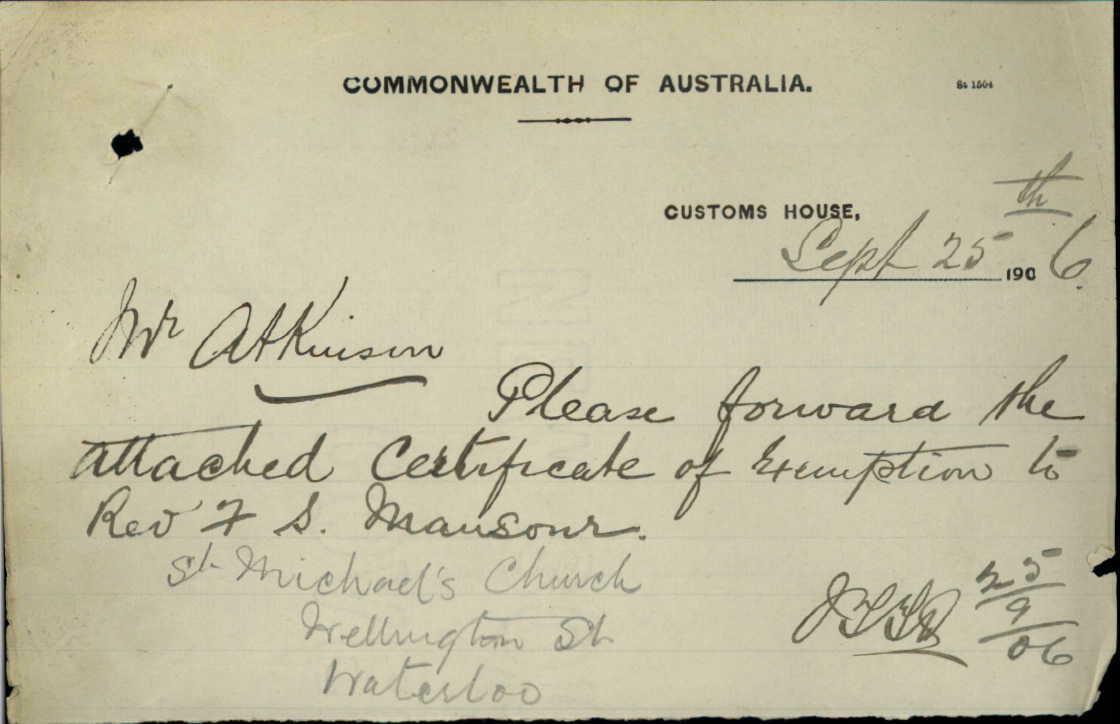 COMMONWEALTH OF AUSTRALIA.
St 1504
CUSTOMS HOUSE,
Sept 25th 1906.
Mr Atkinson
Please forward the
attached Certificate of Exemption to
Rev F S. Mansour.
St Michael's Church
Wellington St
Waterloo
25/9/06